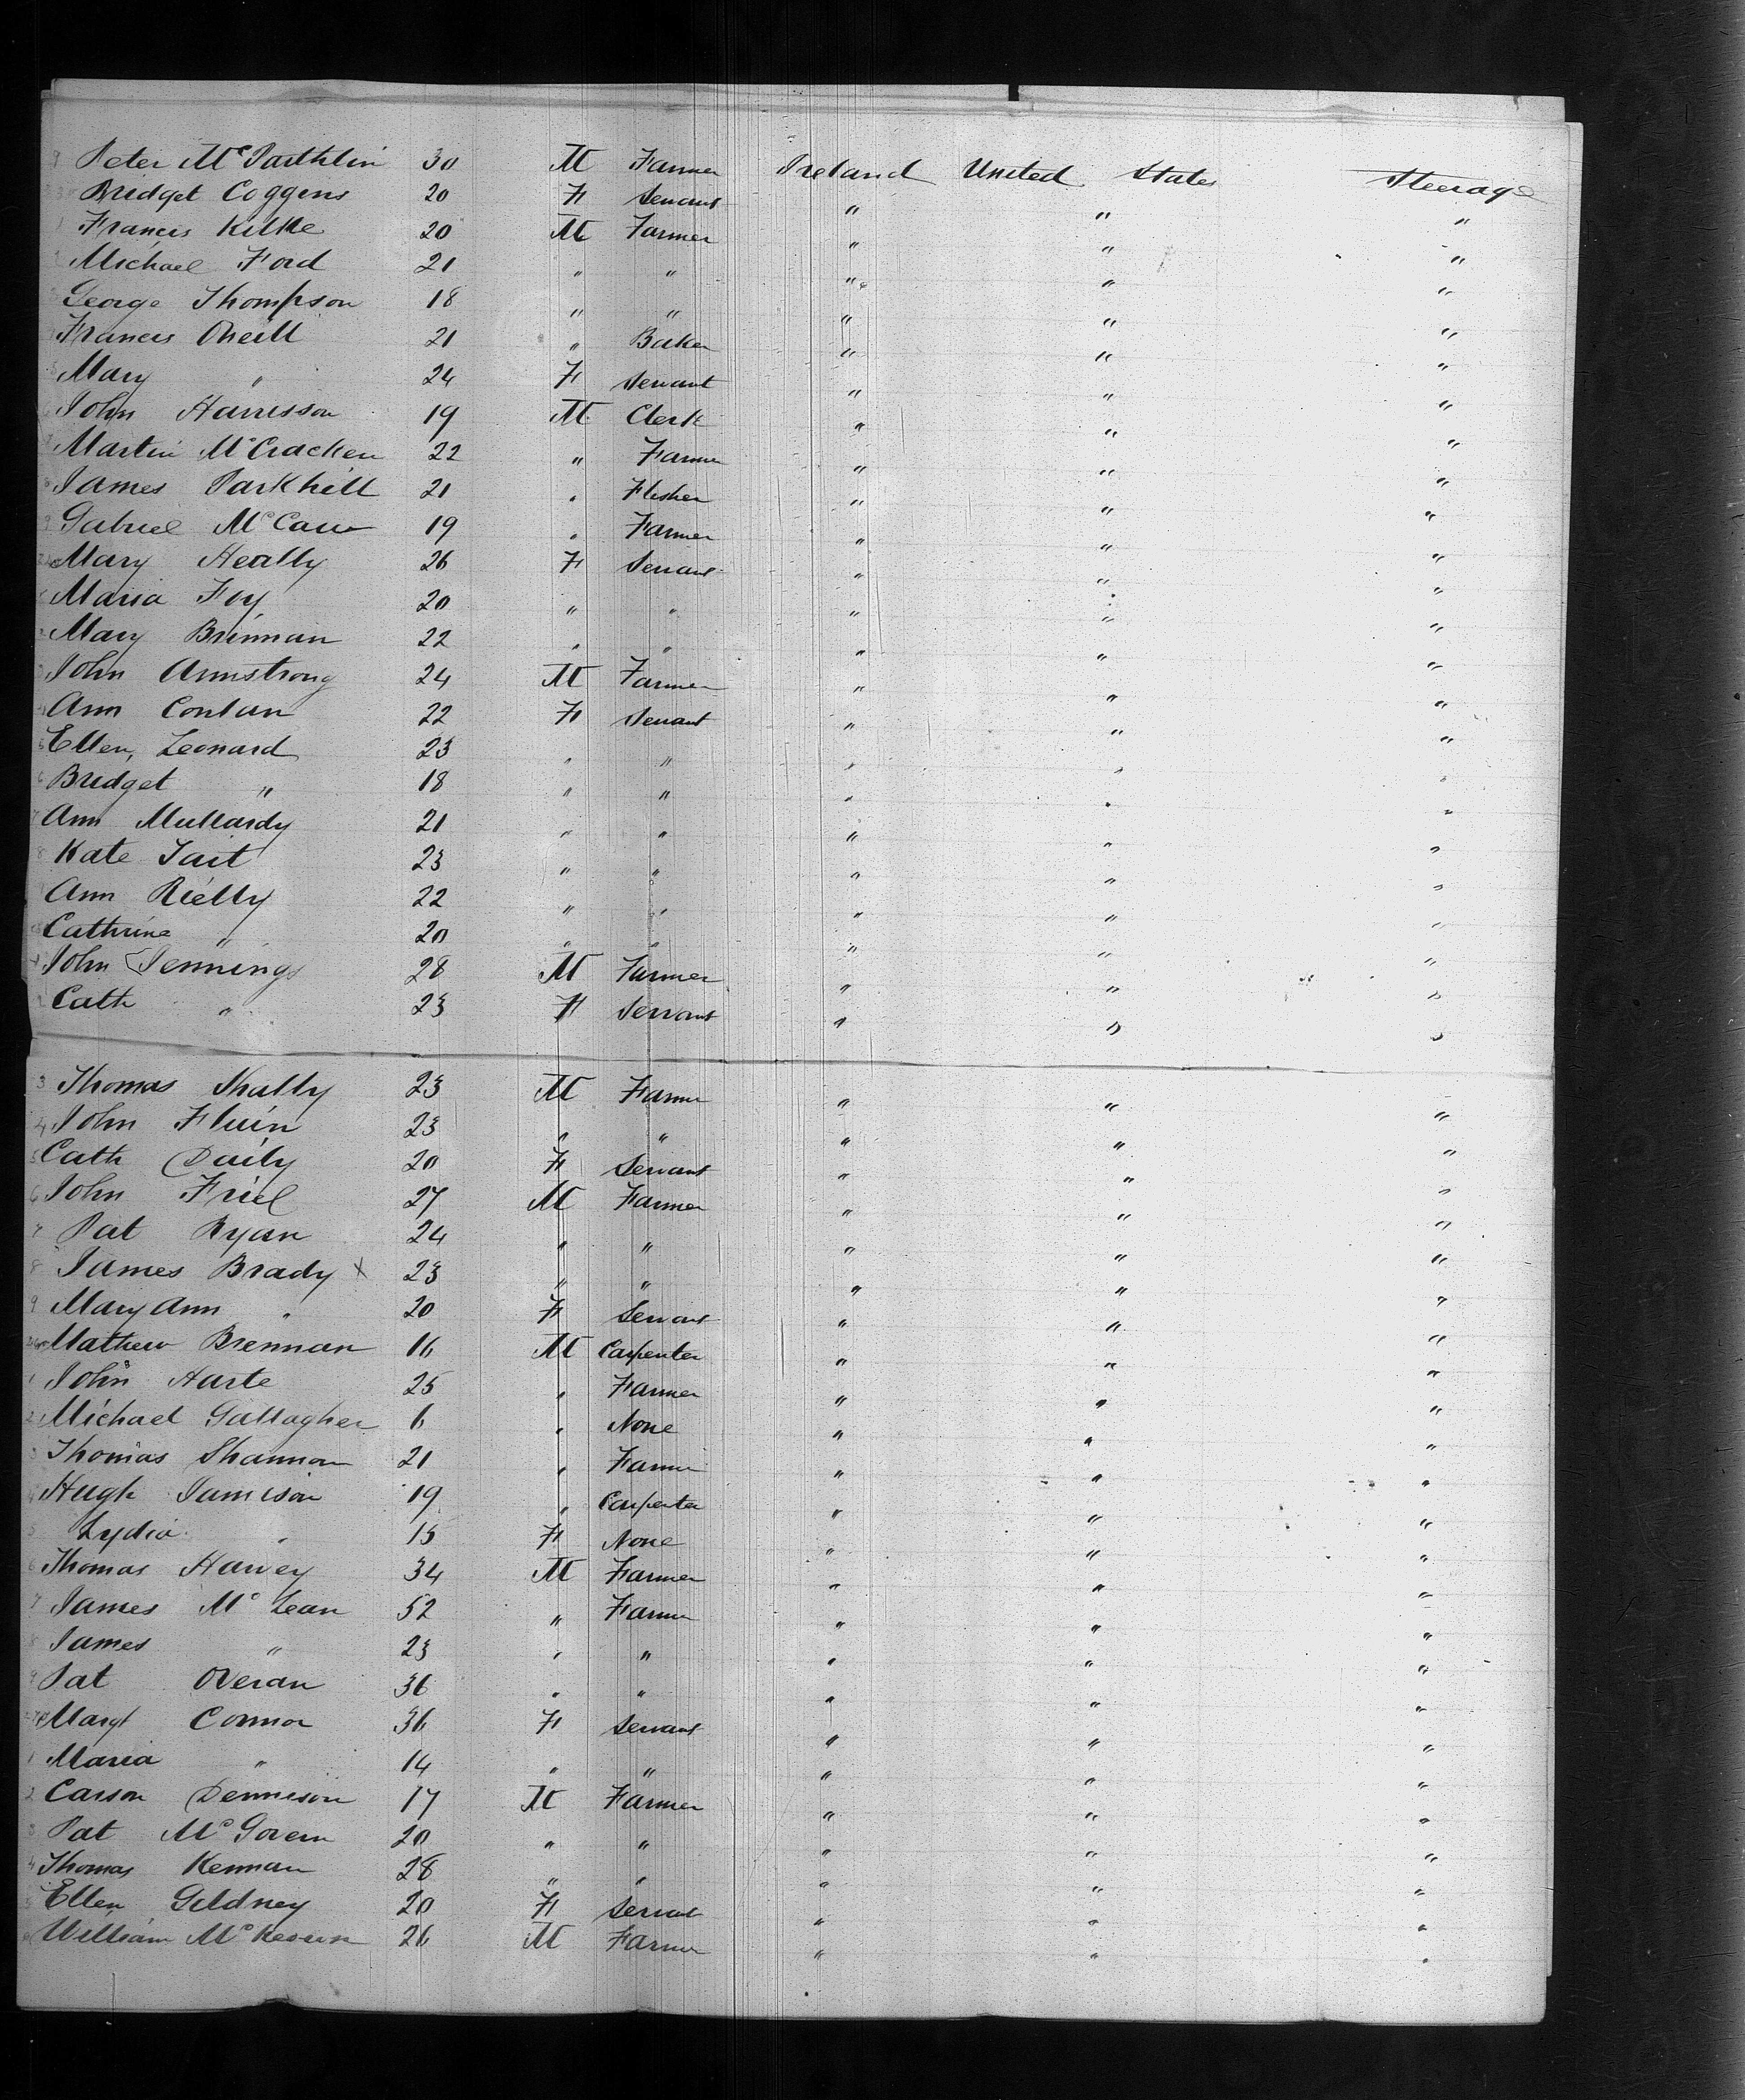 Peter McParthlin 30 M Farmer Ireland United States Steerage
Bridget Coggens 20 F Servant " " "
Francis Kilke 20 M Farmer " " "
Michael Ford 21 " " " " "
George Thompson 18 " " " " "
Francis Oneill 21 " Baker " " "
Mary " 24 F Servant " " "
John Harrisson 19 M Clerk " " "
Martin McCracken 22 " Farmer " " "
James Parkhill 21 " Flesher " " "
Gabriel McCaw 19 " Farmer " " "
Mary Heally 26 F Servant " " "
Maria Foy 20 " " " " "
Mary Brinnan 22 " " " " "
John Armstrong 24 M Farmer " " "
Ann Conlan 22 F Servant " " "
Ellen Leonard 23 " " " " "
Bridget " 18 " " " " "
Ann Mullardy 21 " " " " "
Kate Tait 23 " " " " "
Ann Rielly 22 " " " " "
Cathrine " 20 " " " " "
John Jennings 28 M Farmer " " "
Cath " 23 F Servant " " "
3 Thomas Nally 23 M Farmer " " "
4 John Fluin 23 " " " " "
5 Cath Daily 20 F Servant " " "
6 John Friel 27 M Farmer " " "
7 Pat Ryan 24 " " " " "
8 James Brady x 23 " " " " "
9 Mary Ann " 20 F Servant " " "
Mathew Brennan 16 M Carpenter " " "
1 John Harte 25 " Farmer " " "
2 Michael Gallagher 6 " None " " "
3 Thomas Shannon 21 " Farmer " " "
4 Hugh Jamison 19 " Carpenter " " "
5 Lydia " 15 F None " " "
6 Thomas Harvey 34 M Farmer " " "
7 James McLean 52 " Farmer " " "
8 James " 23 " " " " "
9 Pat Overan 36 " " " " "
Margt Connor 36 F Servant " " "
1 Maria " 14 " " " " "
2 Carson Dennison 17 M Farmer " " "
3 Pat McGovern 20 " " " " "
4 Thomas Kennan 28 " " " " "
5 Ellen Geldney 20 F Servant " " "
William McKeown 26 M Farmer " " "